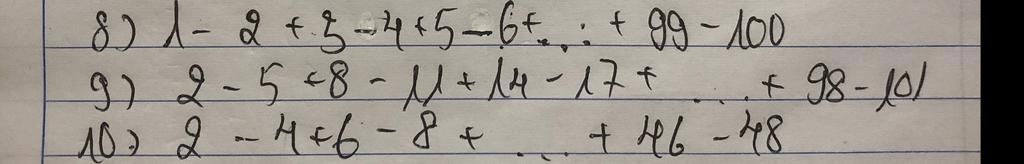 8) 1 - 2 + 3 - 4 + 5 - 6 + ... + 99 - 100
9) 2 - 5 + 8 - 11 + 14 - 17 + ... + 98 - 101
10) 2 - 4 + 6 - 8 + ... + 46 - 48